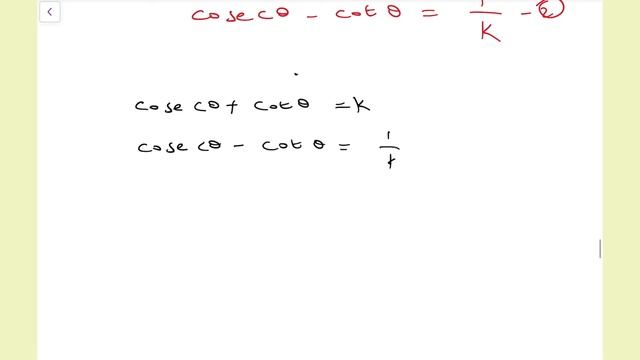 cosec θ - cot θ = 1/K - ②
cosec θ + cot θ = K
cosec θ - cot θ = 1/k